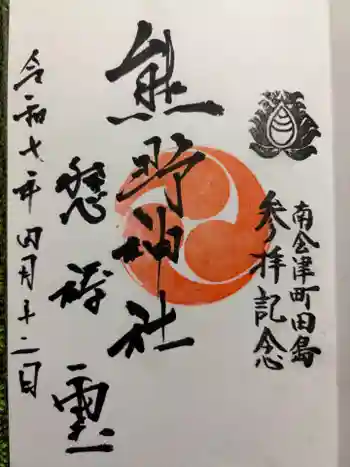 南会津町田島
参拝記念
熊野神社
令和七年四月十二日